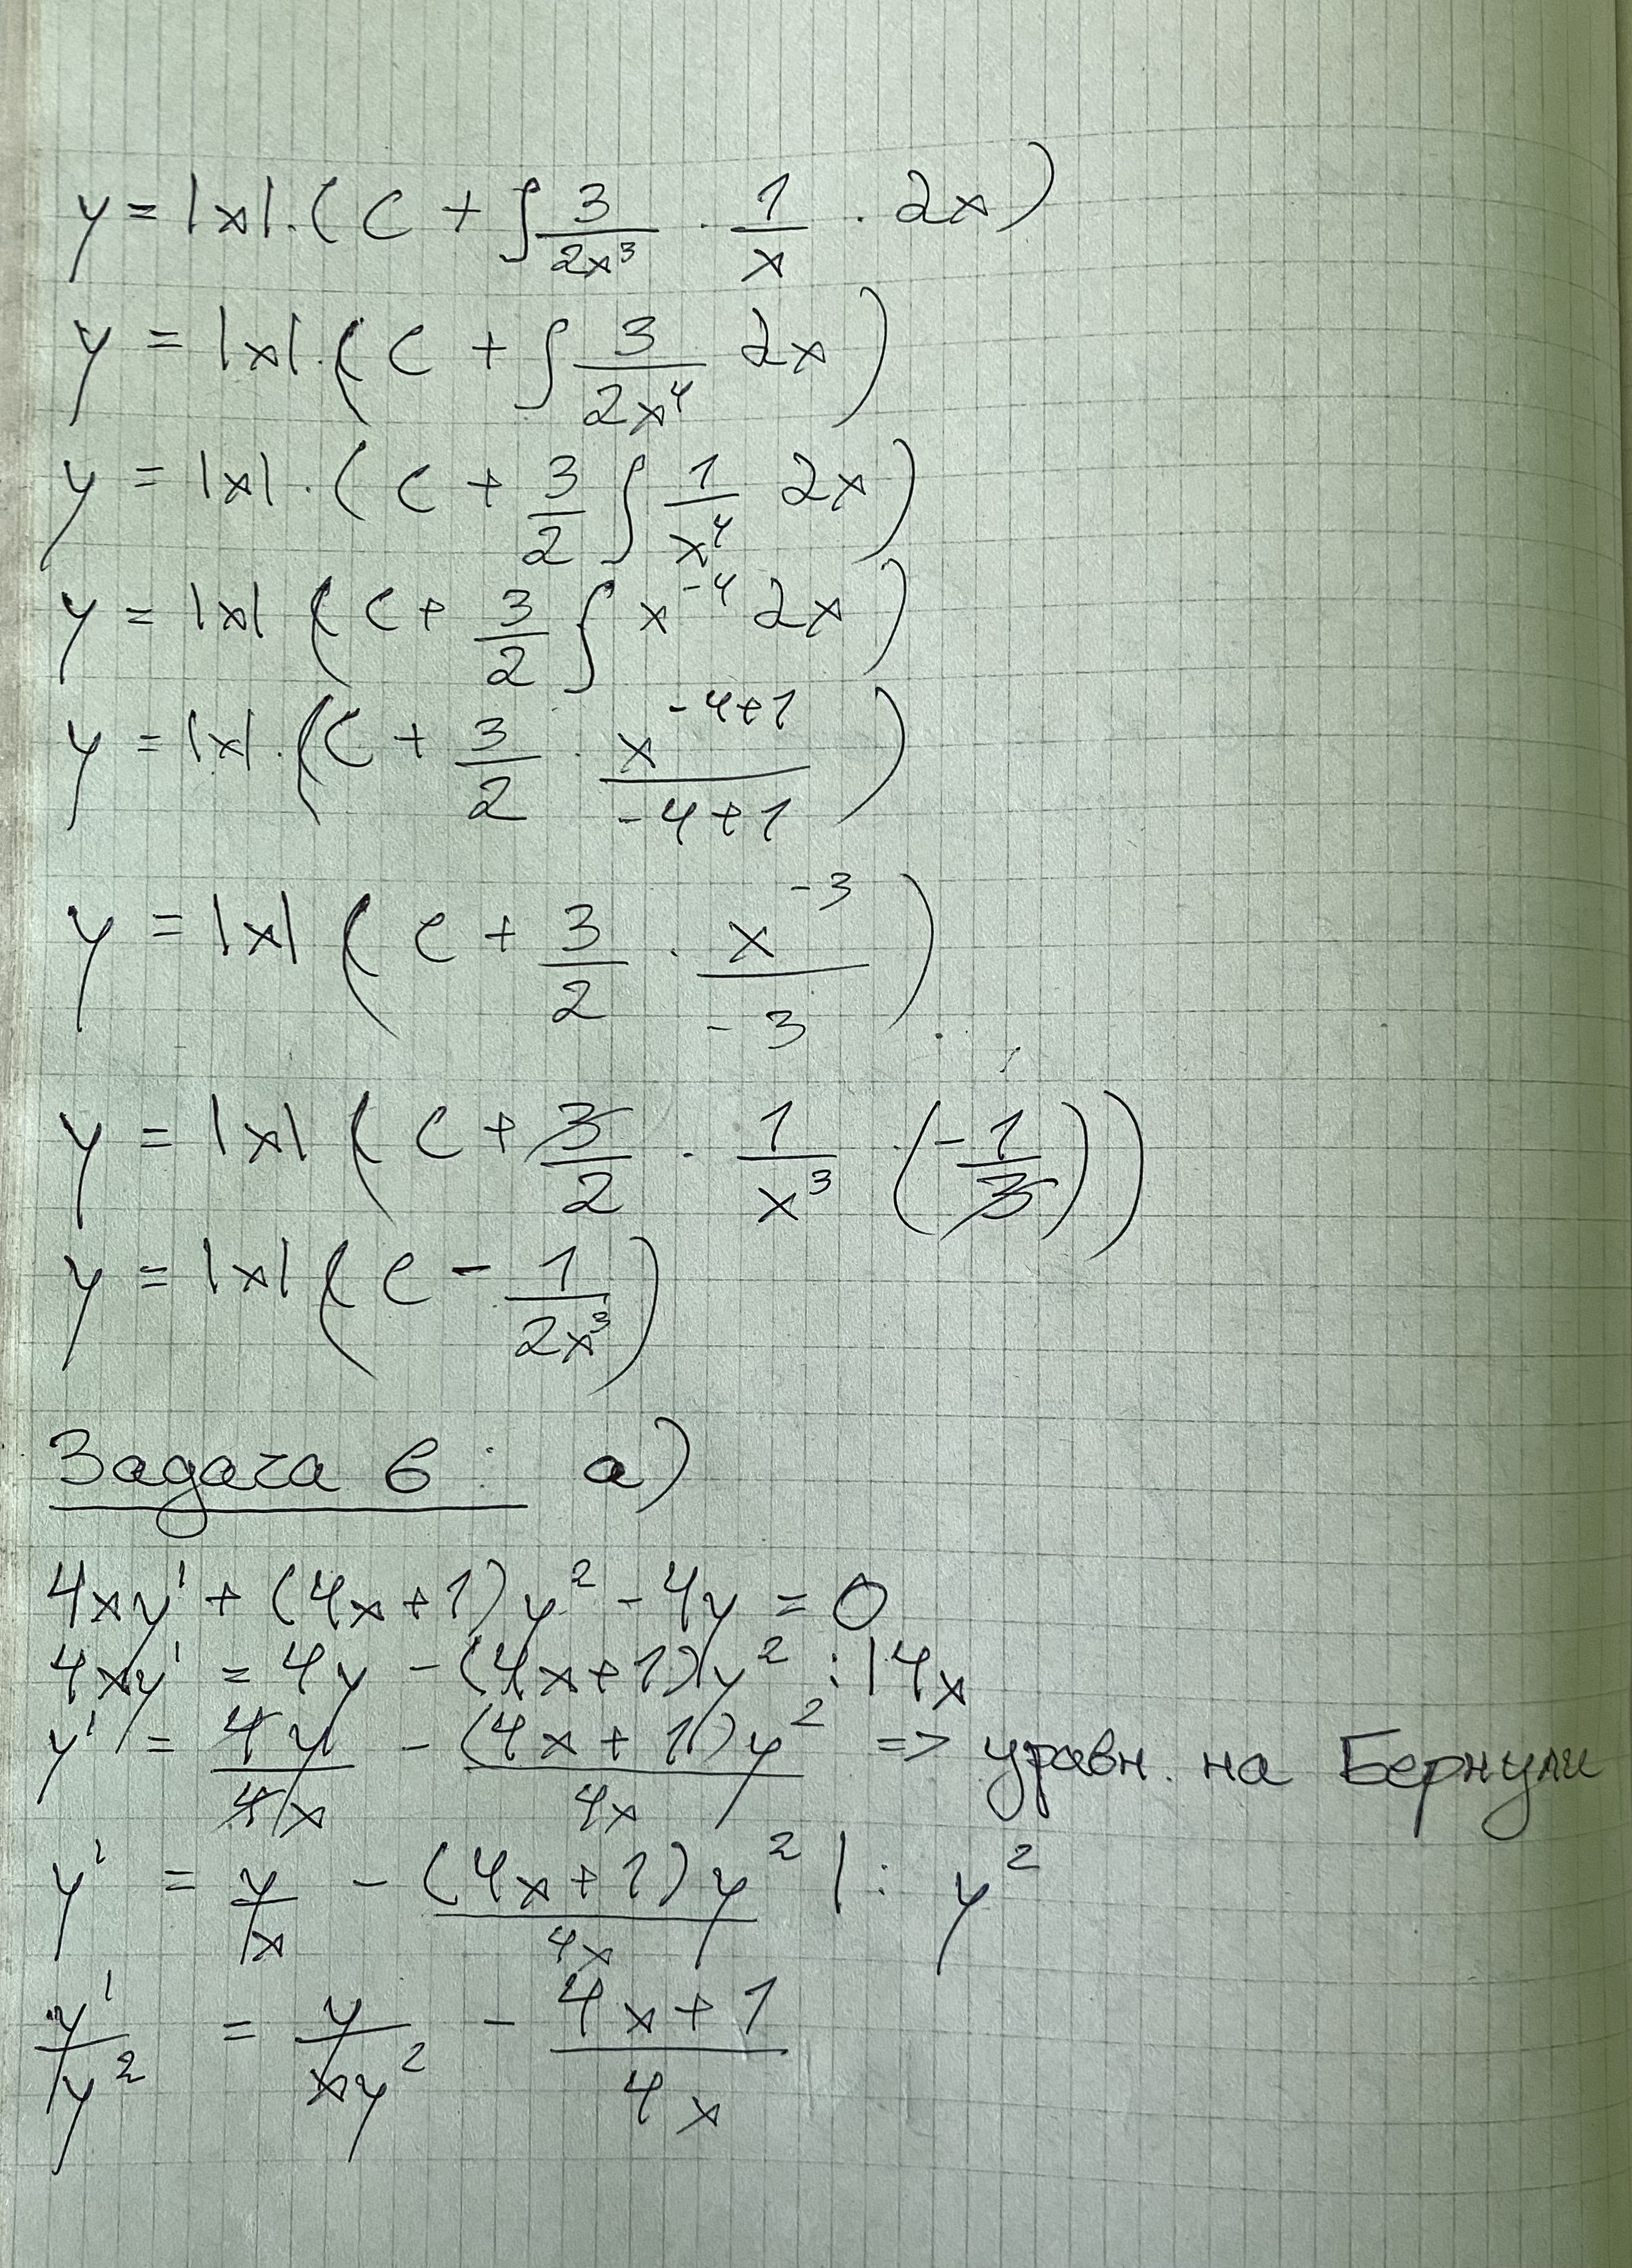 y = |x|.(C + ∫ 3/2x³ . 1/x . 2x)
y = |x|.(C + ∫ 3/2x⁴ 2x)
y = |x|.(C + 3/2 ∫ 1/x⁴ 2x)
y = |x| (C + 3/2 ∫ x⁻⁴ 2x)
y = |x|.(C + 3/2 . x⁻⁴⁺¹/-4+1)
y = |x| (C + 3/2 . x⁻³/-3)
y = |x| (C + 3/2 . 1/x³ . (-1/3))
y = |x| (C - 1/2x³)
Задача 6: a)
4xy' + (4x+1)y² - 4y = 0
4xy' = 4y - (4x+1)y² :|4x
y' = 4y/4x - (4x+1)y²/4x => уравн. на Бернули
y' = y/x - (4x+1)y²/4x |: y²
y'/y² = y/xy² - 4x+1/4x